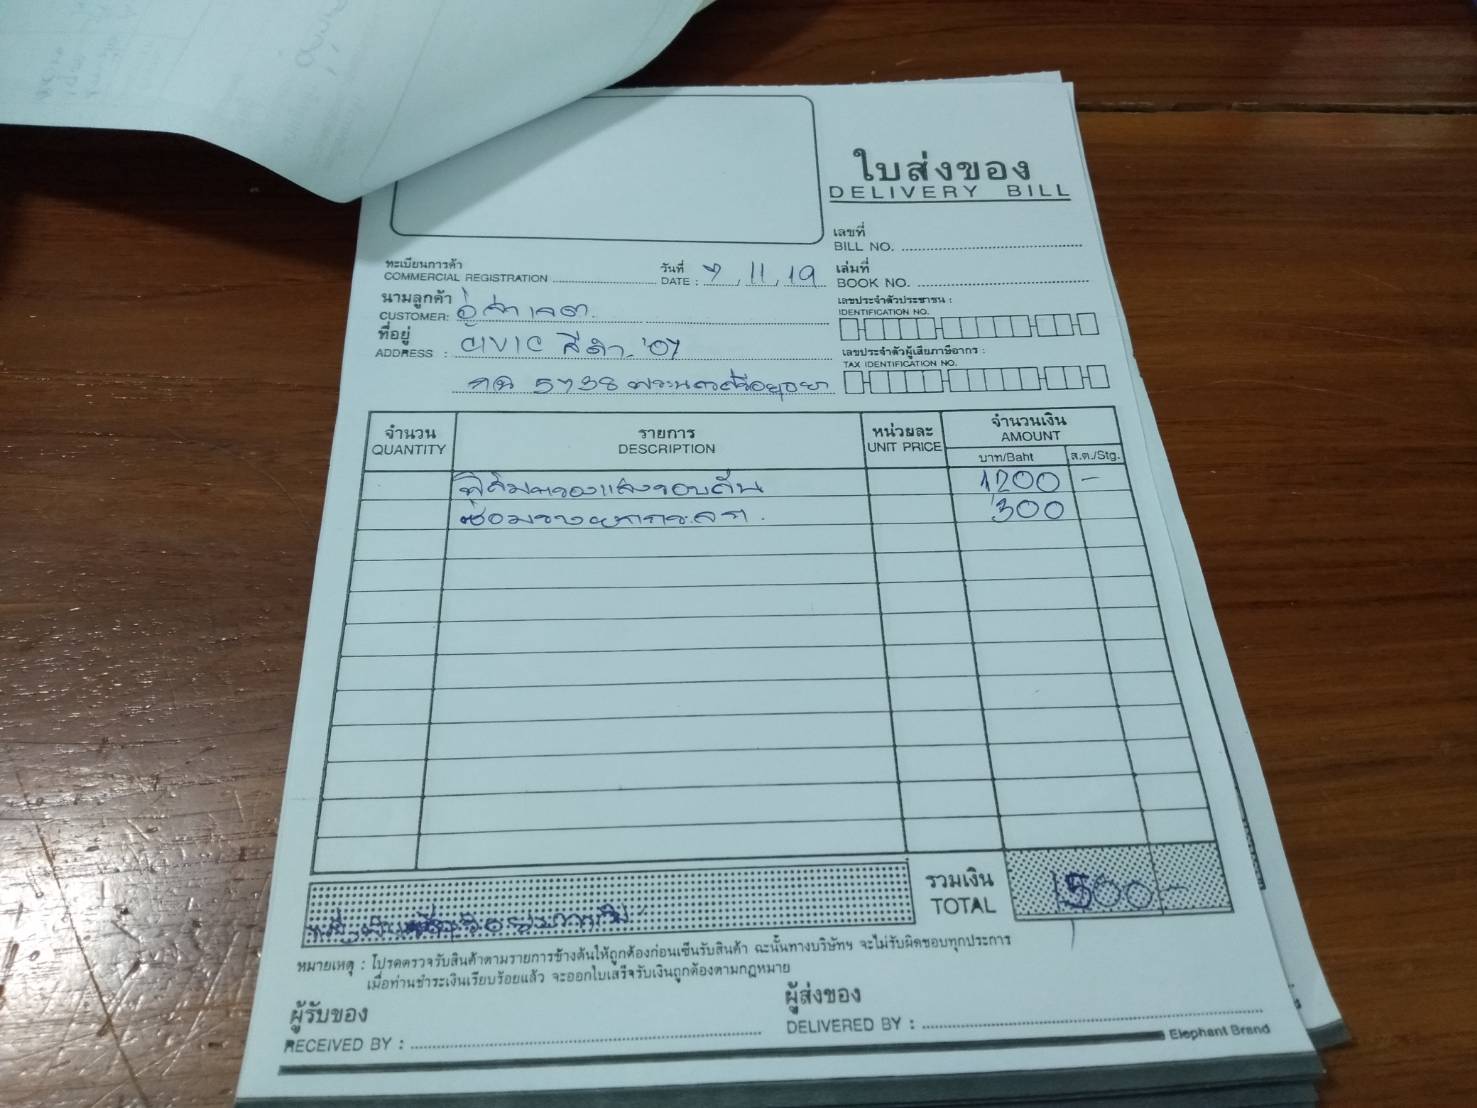 ใบส่งของ
DELIVERY BILL
เลขที่
BILL NO.
ทะเบียนการค้า
COMMERCIAL REGISTRATION
วันที่
DATE : 7, 11, 19
เล่มที่
BOOK NO.
นามลูกค้า
CUSTOMER: อู่
เลขประจำตัวประชาชน :
IDENTIFICATION NO.
ที่อยู่
ADDRESS : CIVIC สีดำ '07
เลขประจำตัวผู้เสียภาษีอากร :
TAX IDENTIFICATION NO.
5738 พระนครศรีอยุธยา
จำนวน
QUANTITY
รายการ
DESCRIPTION
หน่วยละ
UNIT PRICE
จำนวนเงิน
AMOUNT
บาท/Baht
ส.ต./Stg.
ฟิล์มกรองแสงรอบคัน 1200 -
ซ่อม 300
รวมเงิน
TOTAL
1500 -
หมายเหตุ : โปรดตรวจรับสินค้าตามรายการข้างต้นให้ถูกต้องก่อนเซ็นรับสินค้า ฉะนั้นทางบริษัทฯ จะไม่รับผิดชอบทุกประการ
เมื่อท่านชำระเงินเรียบร้อยแล้ว จะออกใบเสร็จรับเงินถูกต้องตามกฎหมาย
ผู้รับของ
RECEIVED BY :
ผู้ส่งของ
DELIVERED BY :
Elephant Brand